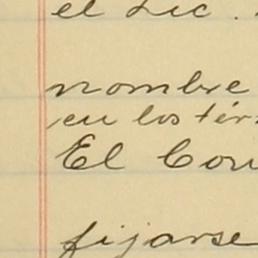 el Lic.
nombre
en los tér
El Con
fijarse